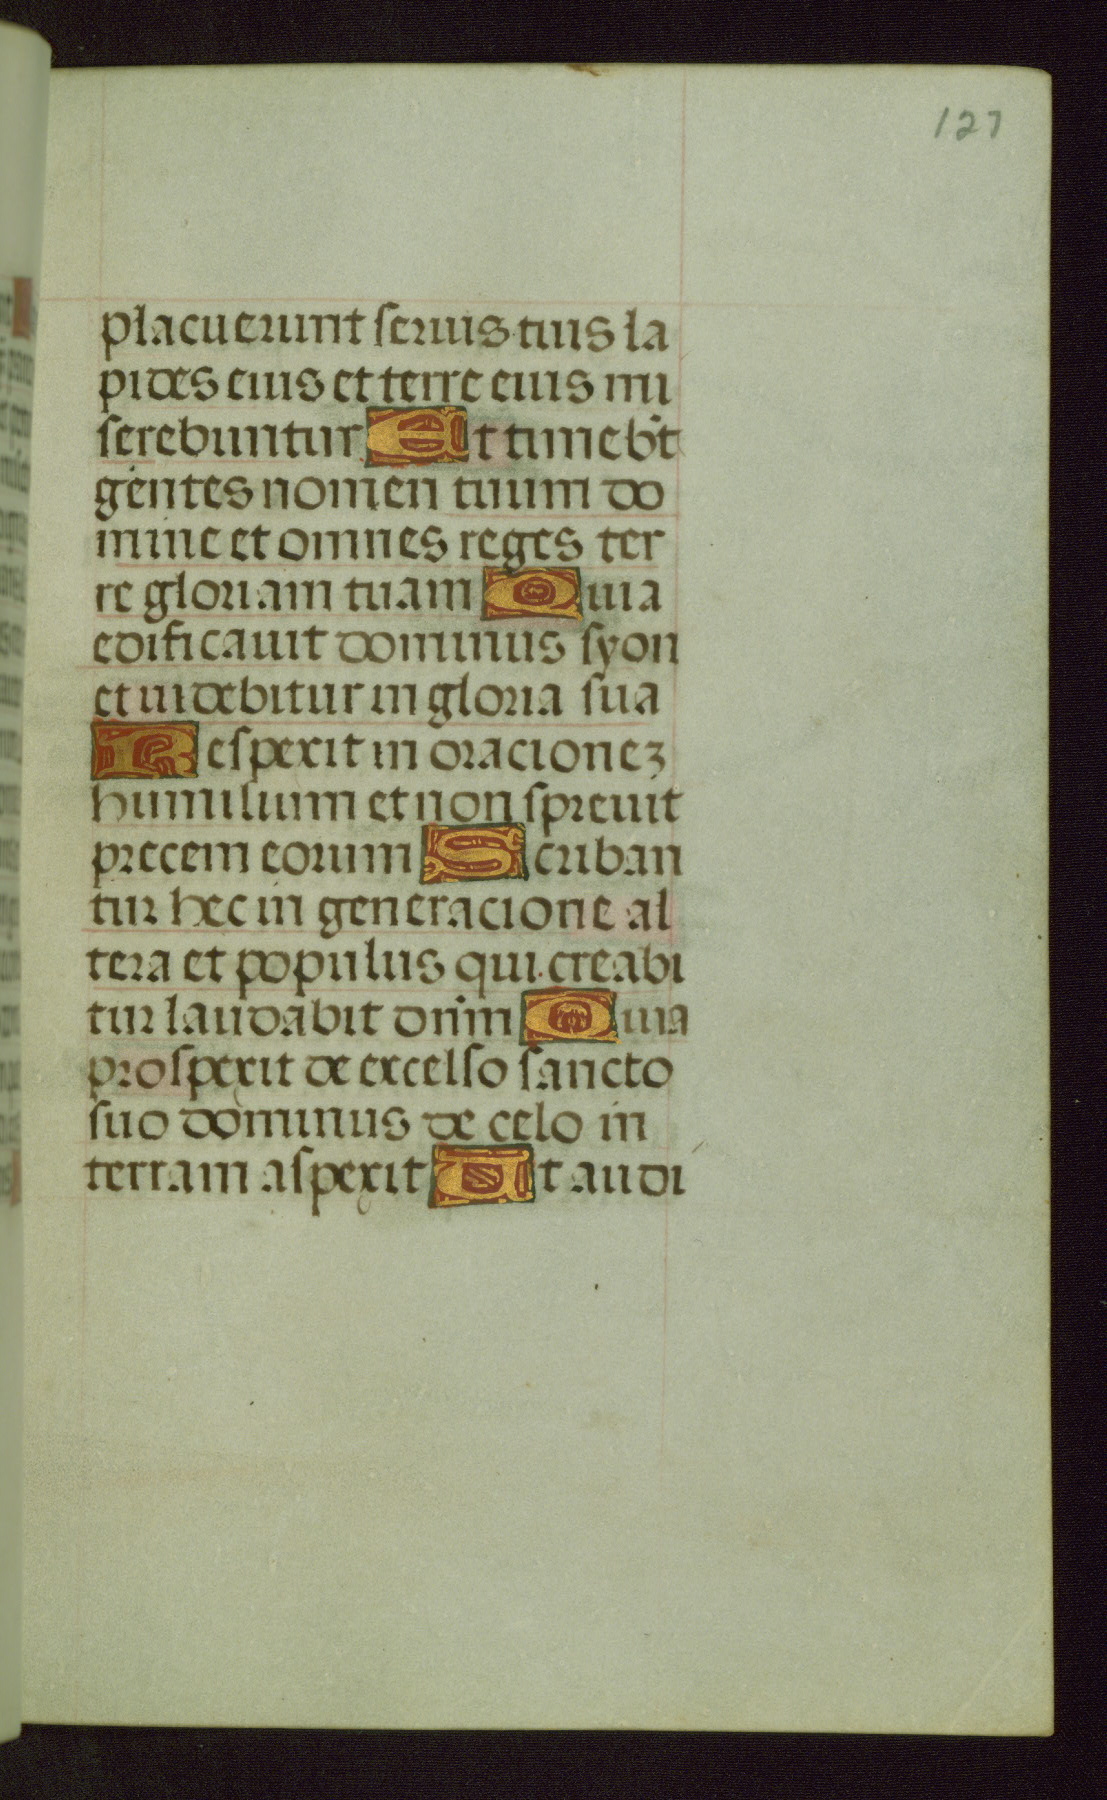 127
placuerunt seruis tuis la
pides eius et terre eius mi
serebuntur Et timeb't
gentes nomen tuum do
mine et omnes reges ter
re gloriam tuam Quia
edificauit dominus syon
et uidebitur in gloria sua
Respexit in oracionez
humilium et non spreuit
precem eorum Scriban
tur hec in generacione al
tera et populus qui creabi
tur laudabit dn̄m Quia
prospexit de excelso sancto
suo dominus de celo in
terram aspexit Ut audi